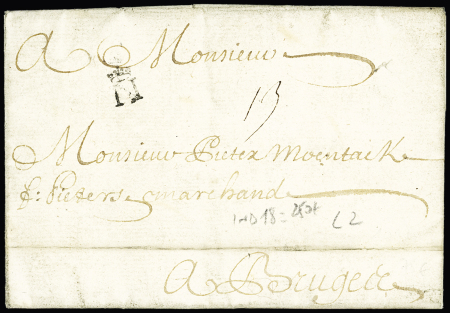 A Monsieur
N
13
Monsieur Pieter Moentack
f: Pieters marchand
IND 18 =
L 2
A Bruges